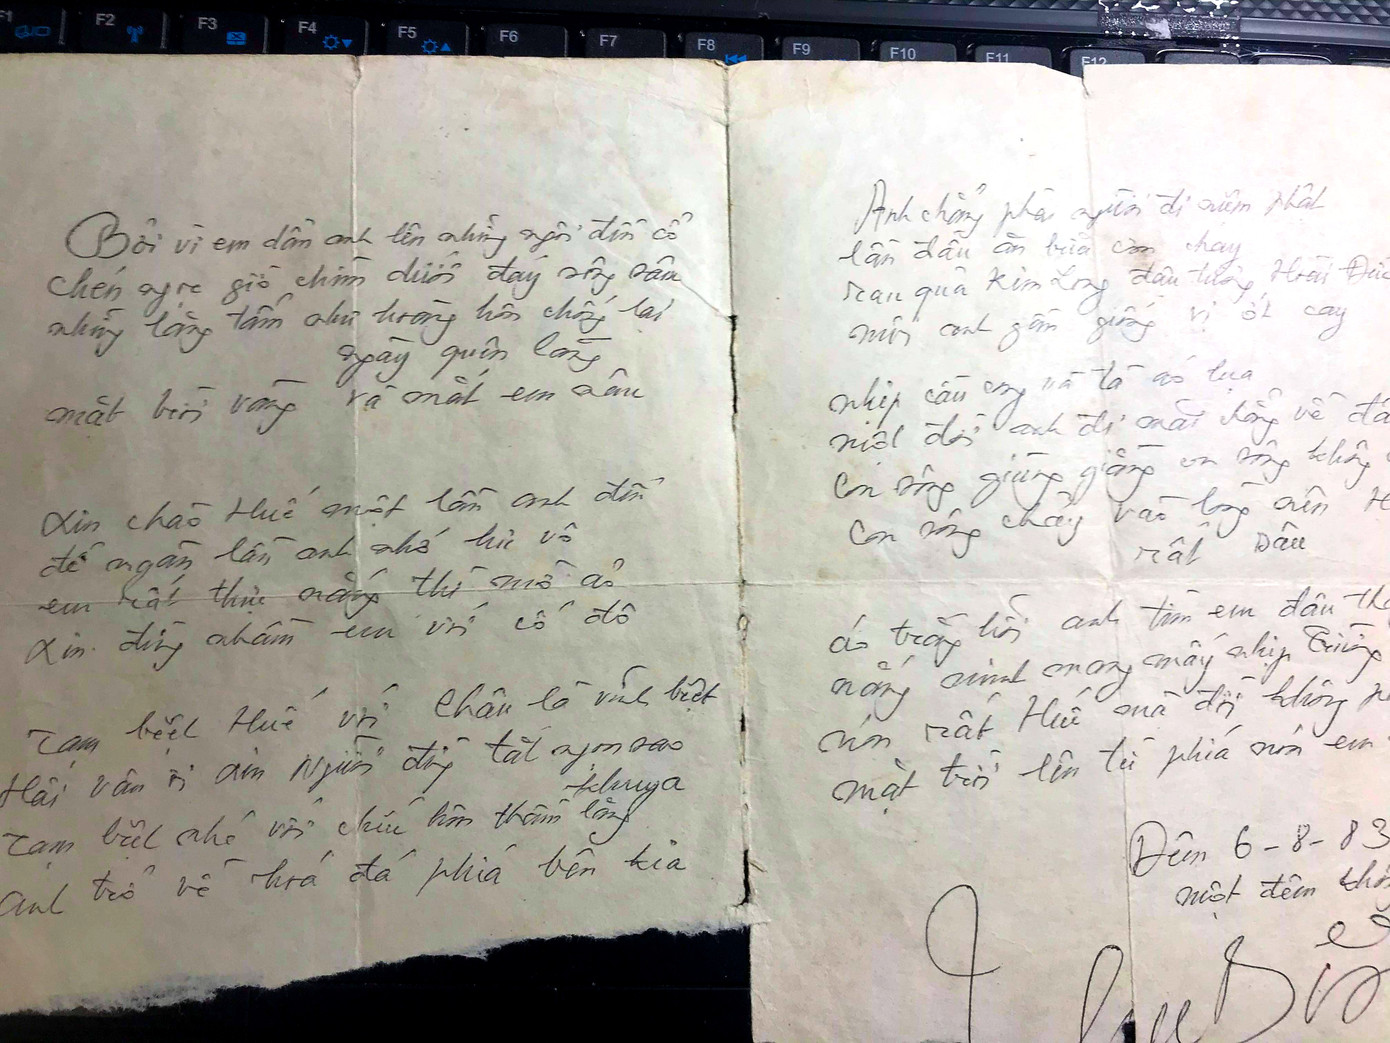 F1
F2
F3
F4
F5
F6
F7
F8
F9
F10
F11
F12
Bởi vì em dẫn anh lên những ngôi đền cổ
chén ngọc giờ chìm dưới đáy sông sâu
những lăng tẩm như hoàng hôn chống lại
ngày quên lãng
mặt trời vàng và mắt em nâu
Xin chào Huế một lần anh đến
để ngàn lần anh nhớ hư vô
em rất thực nắng thì mờ ảo
xin đừng nhầm em với cố đô
Tạm biệt Huế với chân là vĩnh biệt
Hải vân ơi xin Người đừng tắt ngọn sao
khuya
Tạm biệt nhé với chiếc hôn thầm lặng
anh trở về hoá đá phía bên kia
Anh chẳng phải người đi niệm phật
lần đầu ăn bữa cơm chay
rau quả Kim Long đậu tương Hoài Đức
mời anh gắp giùm vị ớt cay
nhịp cầu cong và tà áo lụa
một đời anh đi mãi chẳng về đâu
Con sông dùng dằng con sông không
Con sông chảy vào lòng nên
rất sâu
áo trắng hỡi anh tìm em đâu
nắng minh mang mấy nhịp Tràng
nón rất Huế mà đời không
mặt trời lên từ phía nón em
Đêm 6-8-83
một đêm